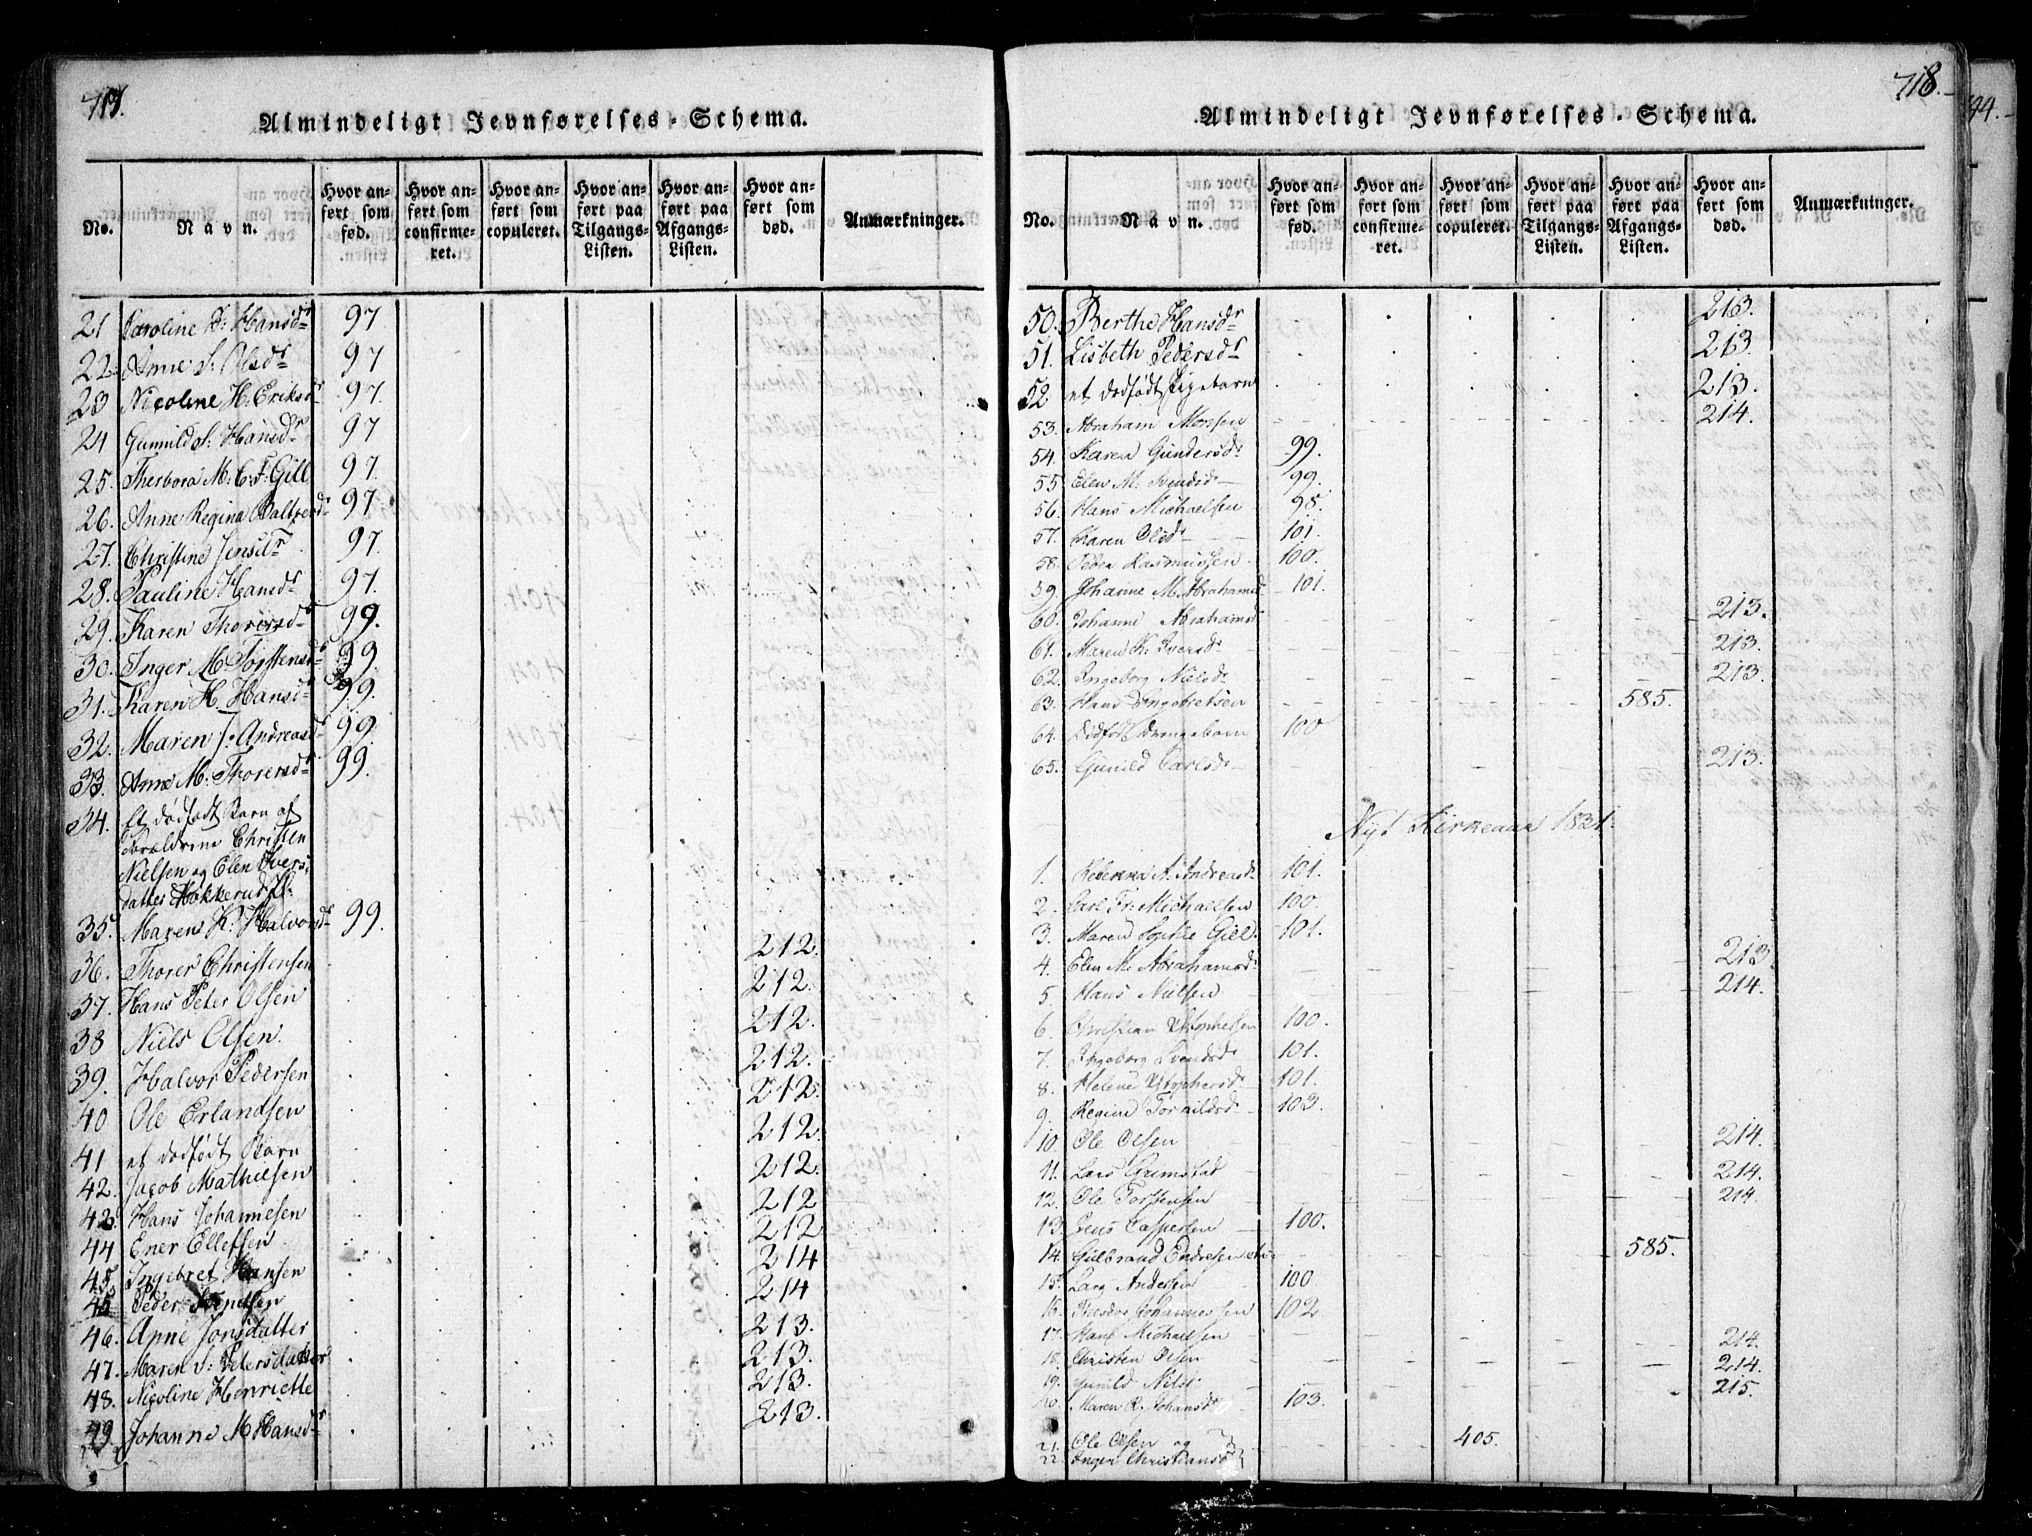 717.
Almindeligt Jevnførelses-Schema.
No. Navn. Hvor anført som fød. Hvor anført som confirmeret. Hvor anført som copuleret. Hvor anført paa Tilgangs-Listen. Hvor anført paa Afgangs-Listen. Hvor anført som død. Anmærkninger.
21 Caroline Hansdr 97
22 Anne S: Olsdr 97
23 Nicoline H. Eriksdr 97.
24 Gunnild S: Hansdr 97
25. Therbora M: C: F: Gill 97.
26. Anne Regina 97
27. Christine Jensdr 97.
28. Pauline Hansdr 97.
29. Karen Thorersdr 99.
30. Inger M Torstensdr 99
31. Karen H. Hansdr 99.
32. Maren J: Andreasdr 99.
33. Anne M: Thorersdr 99.
34. Et dødfødt Barn af
Forældrene Christen
Nielsen og Elen Ivers-
datter
35. Maren K: Halvorsdr 99.
36. Thorer Christensen 212.
37. Hans Peter Olsen 212.
38 Niels Olsen. 212.
39. Halvor Pedersen 212.
40 Ole Erlandsen 212.
41 et dødfødt Barn 212.
42. Jacob Mathiesen 212.
43 Hans Johannesen 212
44 Ener Ellefsen 212
45. Ingebret Hansen 214
45 Peder Svendsen 214
46. Anne Jonsdatter 213.
47. Maren S: Petersdatter 213.
48. Nicoline Henriette 213.
49 Johanne M Hansdr 213.
718.
Almindeligt Jevnførelses-Schema.
No. Navn. Hvor anført som fød. Hvor anført som confirmeret. Hvor anført som copuleret. Hvor anført paa Tilgangs-Listen. Hvor anført paa Afgangs-Listen. Hvor anført som død. Anmærkninger.
50. Berthe Hansdr 213.
51. Lisbeth Pedersdr 213.
52 et dødfødt Pigebarn 213.
53. Abraham 214.
54. Karen Gundersdr 99.
55 Elen M. Svendsdr 99.
56. Hans Michaelsen 98.
57. Karen Olsdr 101.
58. Peder Rasmussen 100.
59. Johanne M. Abrahamsd 101.
60. Johanne Abrahamsd 213.
61. Maren K. Iversdr 213.
62. Ingeborg Nielsdr 213.
63. Hans Engebretsen 585.
64. Dødfødt Drengebarn 100
65. Gunild Carlsdr 213.
Nyt Kirkeaar 1821.
1. Rebekka A. Andreasdr 101.
2. Carl Fr: Michaelsen 100.
3. Maren Sophie Gill. 101.
4. Elen M. Abrahamsdr 213
5. Hans Nielsen 214.
6. Christian Xstophersen 100.
7. Ingeborg Svendsdr 101.
8. Helene Xstophersdr 101.
9. Regine Torkildsd 103.
10. Ole Olsen 214.
11. Lars Grimstad 214.
12. Ole Torstensen 214
13. Jens Caspersen 100.
14. Gulbrand Endresen 585.
15. Lars Andersen 100.
16. Johannessen 102
17. Hans Michaelsen 214.
18. Christen Olsen 214.
19. Gunild Nilsd 215.
20. Maren R. Johansdr 103.
21. Ole Olsen og 405.
22. Inger Christiansdr